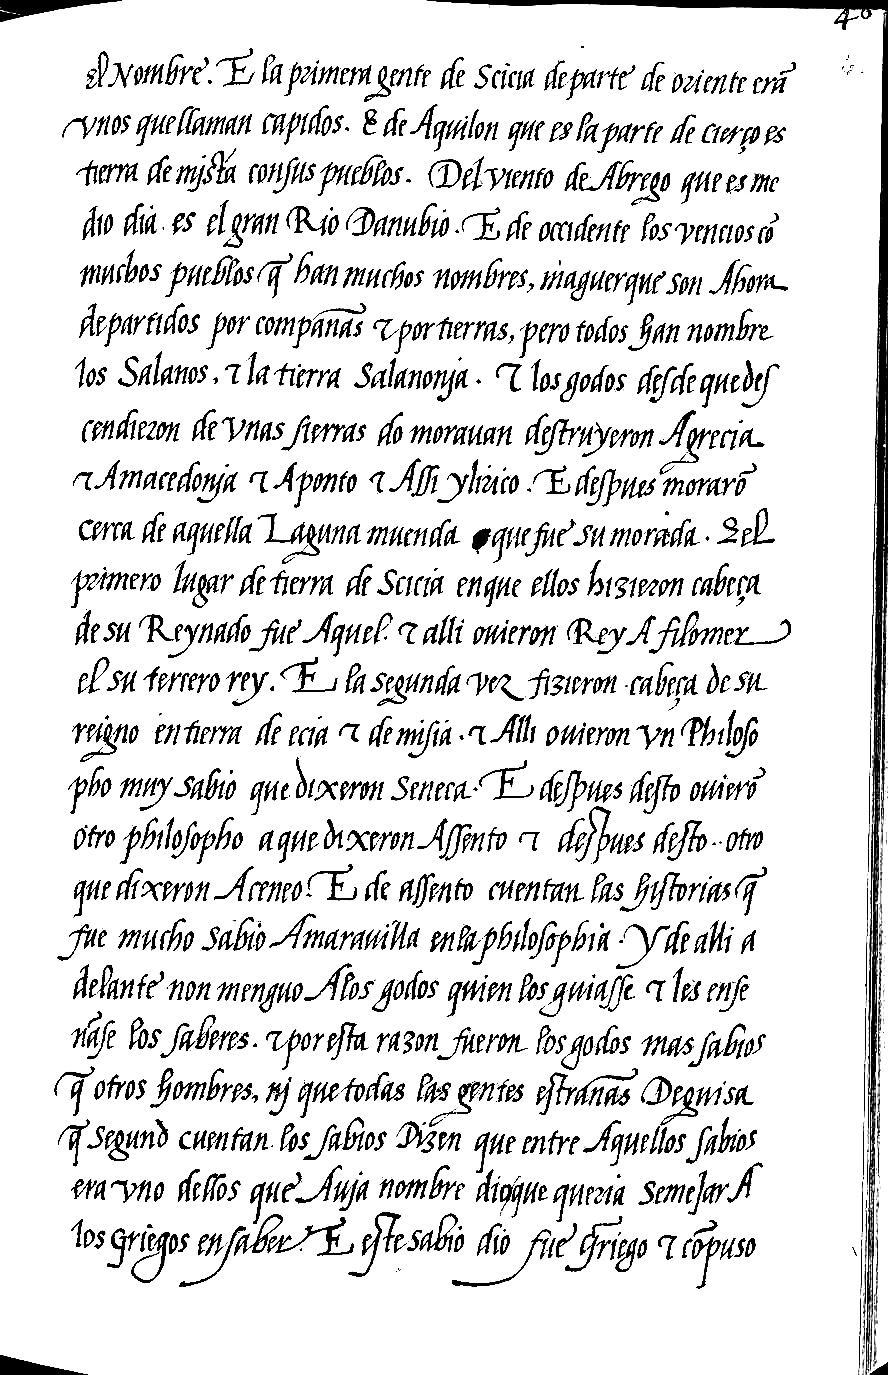 40
el Nombre. E la primera gente de Scicia de parte de oriente erã
vnos que llaman capidos. E de Aquilon que es la parte de cierço es
tierra de mistia con sus pueblos. Del viento de Abrego que es me
dio dia. es el gran Rio Danubio. E de occidente los vencios cõ
muchos pueblos q̃ han muchos nombres, maguer que son Ahora
departidos por compañas τ por tierras, pero todos han nombre
los Salanos, τ la tierra Salanonja. τ los godos desde que des
cendieron de vnas sierras do morauan destruyeron Agrecia
τ Amacedonja τ Aponto τ Assi ylirico. E despues morarõ
cerca de aquella Laguna muenda que fue su morada. E el
primero lugar de tierra de Scicia en que ellos hizieron cabeça
de su Reynado fue Aquel. τ alli ouieron Rey A filomer
el su tercero rey. E la segunda vez fizieron cabeça de su
reigno en tierra de ecia τ de misia. τ Alli ouieron vn Philoso
pho muy sabio que dixeron Seneca. E despues desto ouierõ
otro philosopho a que dixeron Assento τ despues desto otro
que dixeron Aceneo. E de assento cuentan las historias q̃
fue mucho sabio Amarauilla en la philosophia. Y de alli a
delante non menguo Alos godos quien los guiasse τ les ense
ñase los saberes. τ por esta razon fueron los godos mas sabios
q̃ otros hombres, nj que todas las gentes estrañas Deguisa
q̃ segund cuentan los sabios Dizen que entre Aquellos sabios
era vno dellos que Auja nombre dio que queria semejar A
los Griegos en saber. E este sabio dio fue Griego τ cõpuso